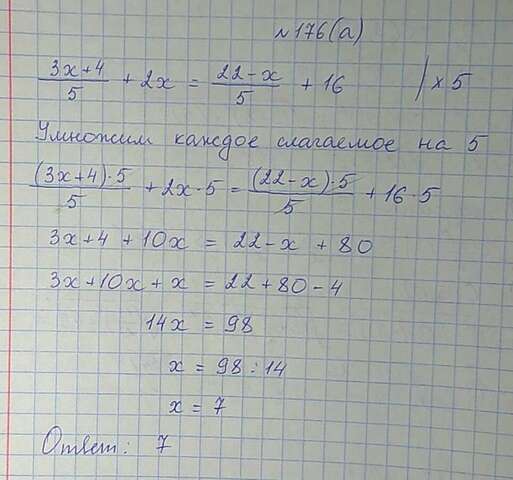 №176(а)
(3x+4)/5 + 2x = (22-x)/5 + 16 | × 5
Умножим каждое слагаемое на 5
((3x+4)·5)/5 + 2x·5 = ((22-x)·5)/5 + 16·5
3x+4 + 10x = 22-x + 80
3x+10x+x = 22+80-4
14x = 98
x = 98:14
x = 7
Ответ: 7